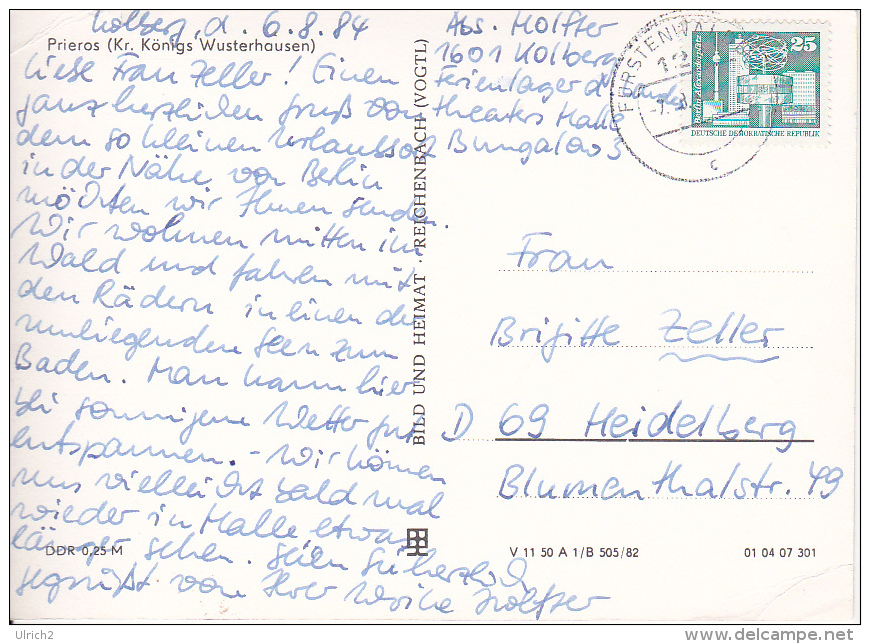 Kolberg, d. 6.8.84
Prieros (Kr. Königs Wusterhausen)
Liebe Frau Zeller! Einen
ganz herzlichen Gruß von
dem so kleinen Urlaubsort
in der Nähe von Berlin
möchten wir Ihnen senden.
Wir wohnen mitten im
Wald und fahren mit
den Rädern in einen der
umliegenden Seen zum
Baden. Man kann hier
bei sonnigem Wetter gut
entspannen. - Wir können
uns vielleicht bald mal
wieder in Halle etwas
länger sehen. Seien Sie herzlich
gegrüßt von Ihrer Holfter
DDR 0,25 M
BILD UND HEIMAT · REICHENBACH (VOGTL)
Abs. Holfter
1601 Kolberg
Ferienlager d. Landes
theaters Halle
Bungalow 3
FÜRSTENWAL
25
DEUTSCHE DEMOKRATISCHE REPUBLIK
c
Frau
Brigitte Zeller
D 69 Heidelberg
Blumenthalstr. 49
V 11 50 A 1/B 505/82
01 04 07 301
Ulrich2
delcampe.net